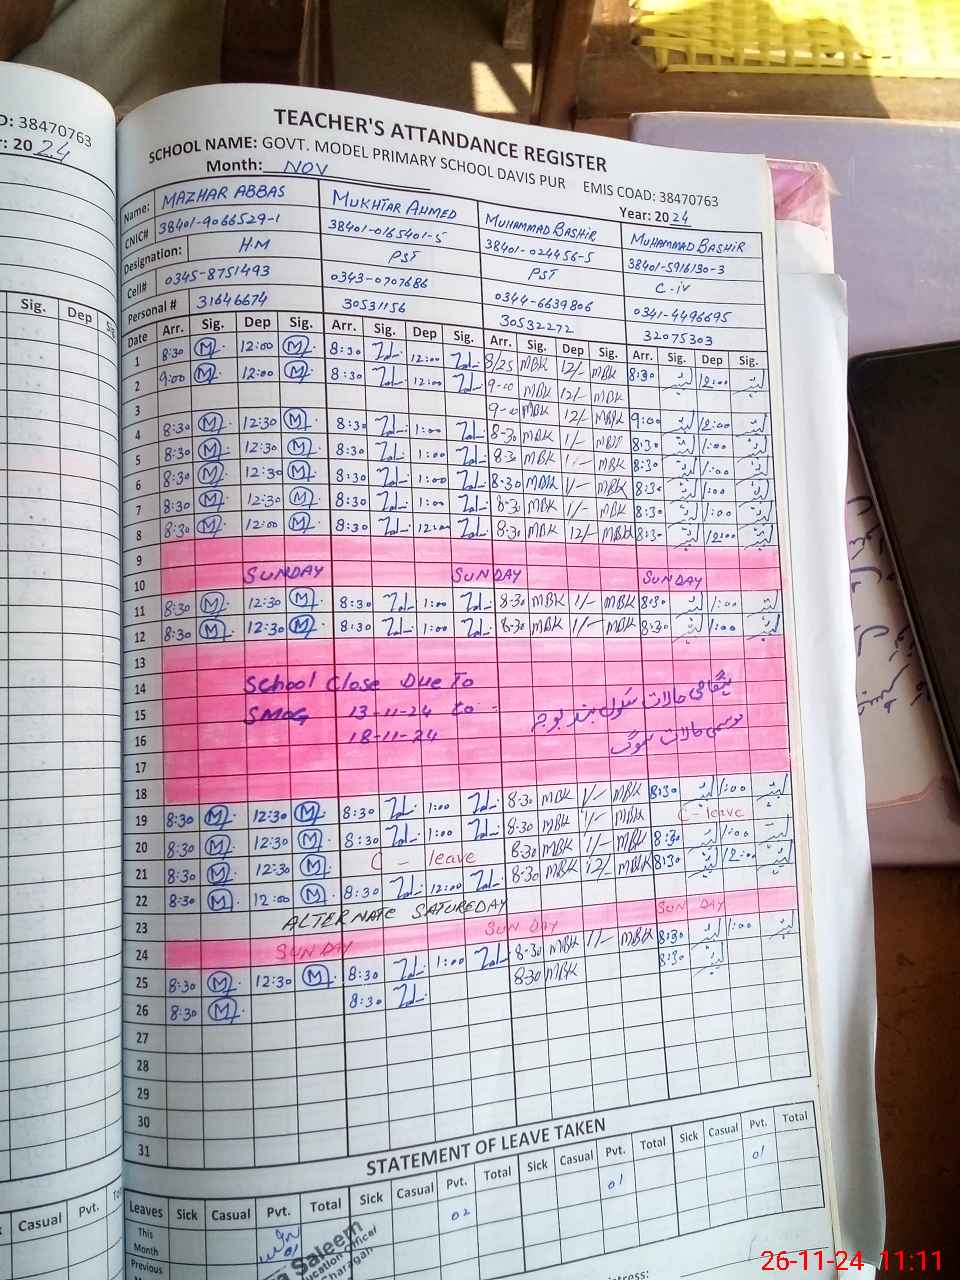 D: 38470763
r: 2024
TEACHER'S ATTANDANCE REGISTER
SCHOOL NAME: GOVT. MODEL PRIMARY SCHOOL DAVIS PUR EMIS COAD: 38470763
Month: NOV Year: 2024
Name: MAZHAR ABBAS MUKHTAR AHMED MUHAMMAD BASHIR MUHAMMAD BASHIR
CNIC# 38401-9066529-1 38401-0165401-5 38401-024456-5 38401-5916130-3
Designation: HM PST PST C-iv
Cell# 0345-8751493 0343-0707686 0344-6639806 0341-4496695
Personal # 31646674 30531156 30532272 32075303
Date Arr. Sig. Dep Sig. Arr. Sig. Dep Sig. Arr. Sig. Dep Sig. Arr. Sig. Dep Sig.
1 8:30 M 12:00 M 8:30 12:00 8/25 MBK 12/- MBK 8:30 12:00
2 9:00 M 12:00 M 8:30 12:00 9-00 MBK 12/- MBK
3 9-0 MBK 12/- MBK 9:00 12:00
4 8:30 M 12:30 M 8:30 1:00 8-30 MBK 1/- MBK 8:30 1:00
5 8:30 M 12:30 M 8:30 1:00 8:30 MBK MBK 8:30 1:00
6 8:30 M 12:30 M 8:30 1:00 8-30 MBK 1/- MBK 8:30 1:00
7 8:30 M 12:30 M 8:30 1:00 8-30 MBK 1/- MBK 8:30 1:00
8 8:30 M 12:00 M 8:30 12:00 8:30 MBK 12/- MBK 8:30 12:00
9
10 SUNDAY SUNDAY SUNDAY
11 8:30 M 12:30 M 8:30 1:00 8-30 MBK 1/- MBK 8:30 1:00
12 8:30 M 12:30 M 8:30 1:00 8-30 MBK 1/- MBK 8:30 1:00
13
14 School Close Due To
15 SMOG 13-11-24 to -
16 18-11-24
17
18
19 8:30 M 12:30 M 8:30 1:00 8-30 MBK 1/- MBK 8:30 1:00
20 8:30 M 12:30 M 8:30 1:00 8-30 MBK 1/- MBK C-leave
21 8:30 M 12:30 M C - leave 8:30 MBK 1/- MBK 8:30 1:00
22 8:30 M 12:00 M 8:30 12:00 8-30 MBK 12/- MBK 8:30 12:00
23 ALTERNATE SATUREDAY
24 SUNDAY SUN DAY SUN DAY
25 8:30 M 12:30 M 8:30 1:00 8-30 MBK 1/- MBK 8:30 1:00
26 8:30 M 8:30 8:30 MBK 8:30
27
28
29
30
31
STATEMENT OF LEAVE TAKEN
Leaves Sick Casual Pvt. Total Sick Casual Pvt. Total Sick Casual Pvt. Total Sick Casual Pvt. Total
This Month 02 01 01
Previous
Saleem
Sig. Dep
Casual Pvt.
26-11-24 11:11